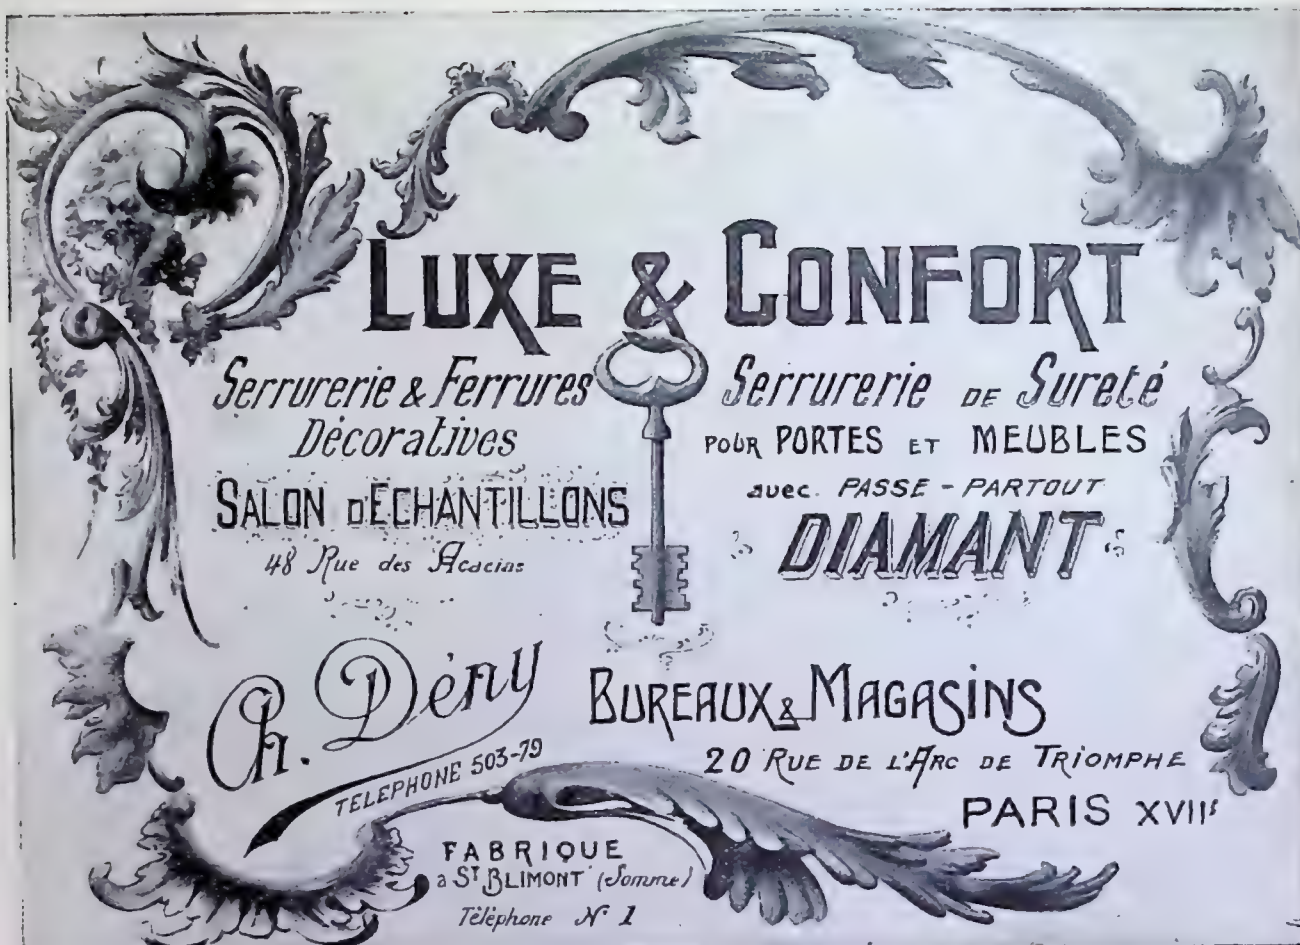 LUXE & CONFORT
Serrurerie & Ferrures
Décoratives
SALON D'ECHANTILLONS
48 Rue des Acacias
Serrurerie DE Sureté
POUR PORTES ET MEUBLES
avec PASSE-PARTOUT
DIAMANT
Ch. Dény
TELEPHONE 503-79
BUREAUX & MAGASINS
20 RUE DE L'ARC DE TRIOMPHE
PARIS XVIIe
FABRIQUE
a ST BLIMONT (Somme)
Téléphone No 1